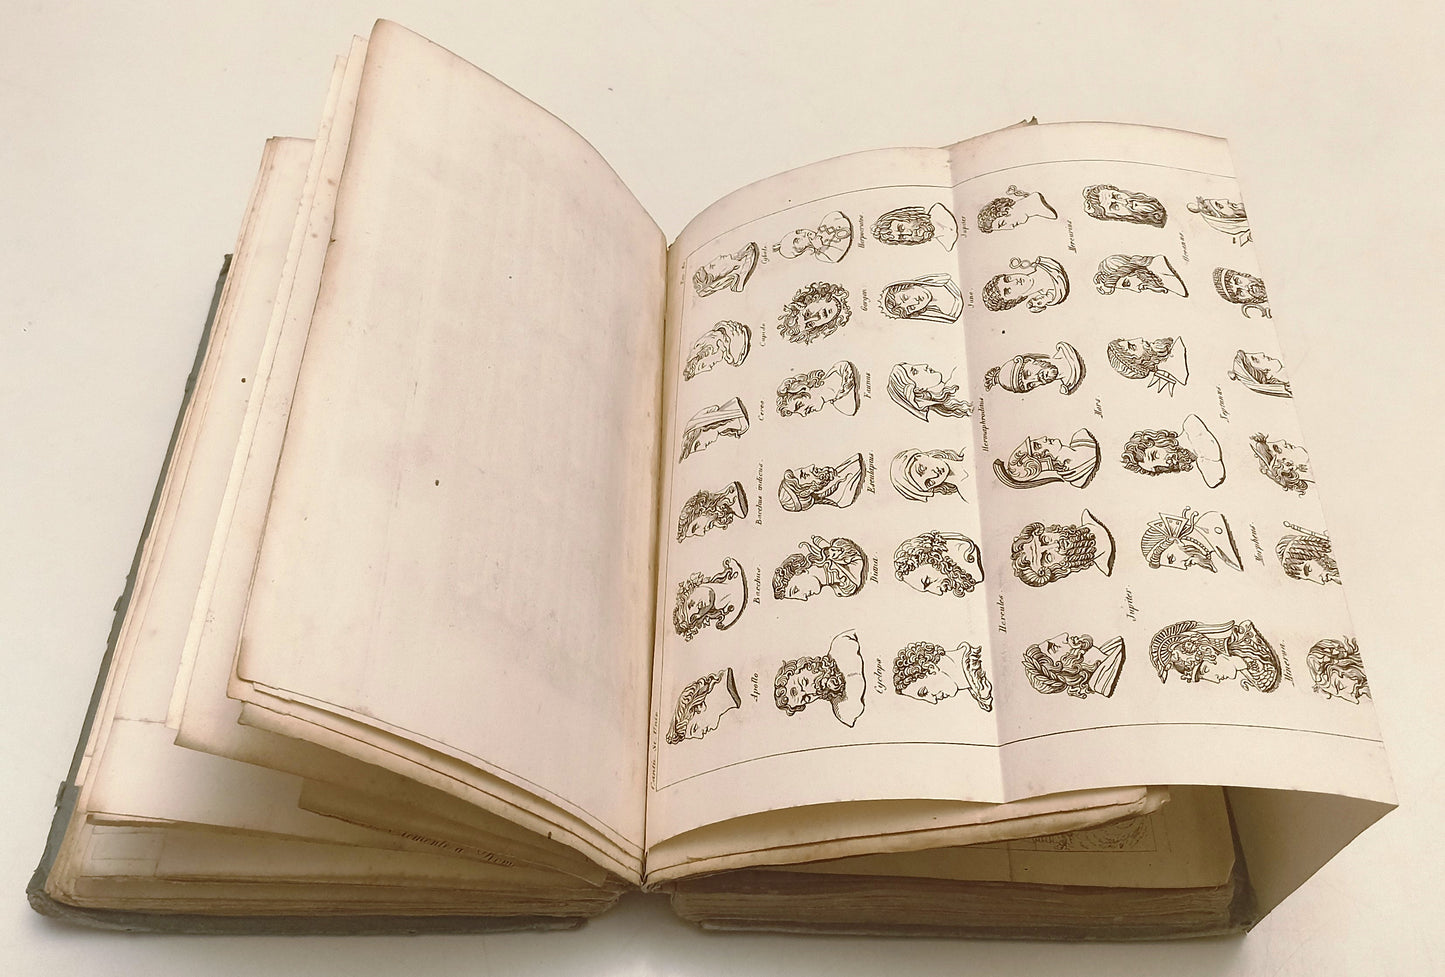 Cybele.
Harpocrates
Jupiter
Mercurius
Oceanus.
Cupido
Gorgon.
Juno
Ceres
Faunus
Hermaphroditus
Mars.
Neptunus
Bacchus indicus.
Esculapius
Bacchus.
Diana.
Hercules
Jupiter
Morpheus.
Apollo.
Cyclops.
Minerva.